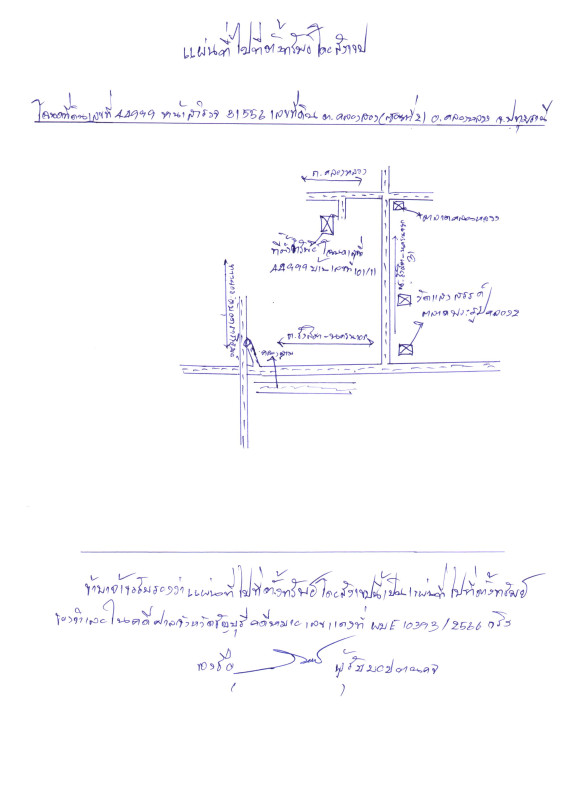 แผนที่ไปที่ตั้งทรัพย์โดยสังเขป
โฉนดที่ดินเลขที่ 44999 หน้าสำรวจ 81556 เลขที่ดิน ต.คลองสอง อ.คลองหลวง จ.ปทุมธานี
ถ.คลองหลวง
ตลาดคลองหลวง
ที่ตั้งทรัพย์ โฉนดเลขที่
44999 บ้านเลขที่ 101/11
31
ถ.รังสิต-นครนายก
คลอง 2
ข้าพเจ้าขอรับรองว่าแผนที่ไปที่ตั้งทรัพย์โดยสังเขปนี้เป็นแผนที่ไปที่ตั้งทรัพย์
ของจำเลยในคดีศาลจังหวัดธัญบุรี คดีหมายเลขแดงที่ ผบE 10393/2566 จริง
ลงชื่อ ผู้รับมอบอำนาจ
( )